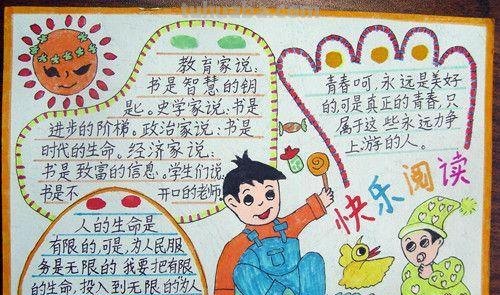 教育家说:
书是智慧的钥
匙。史学家说:书是
进步的阶梯。政治家说:书是
时代的生命。经济家说:
书是致富的信息。学生们说
书是不 开口的老师
青春呵,永远是美好
的,可是真正的青春,只
属于这些永远力争
上游的人。
快乐阅读
人的生命是
有限的,可是,为人民服
务是无限的 我要把有限
的生命,投入到无限的为人